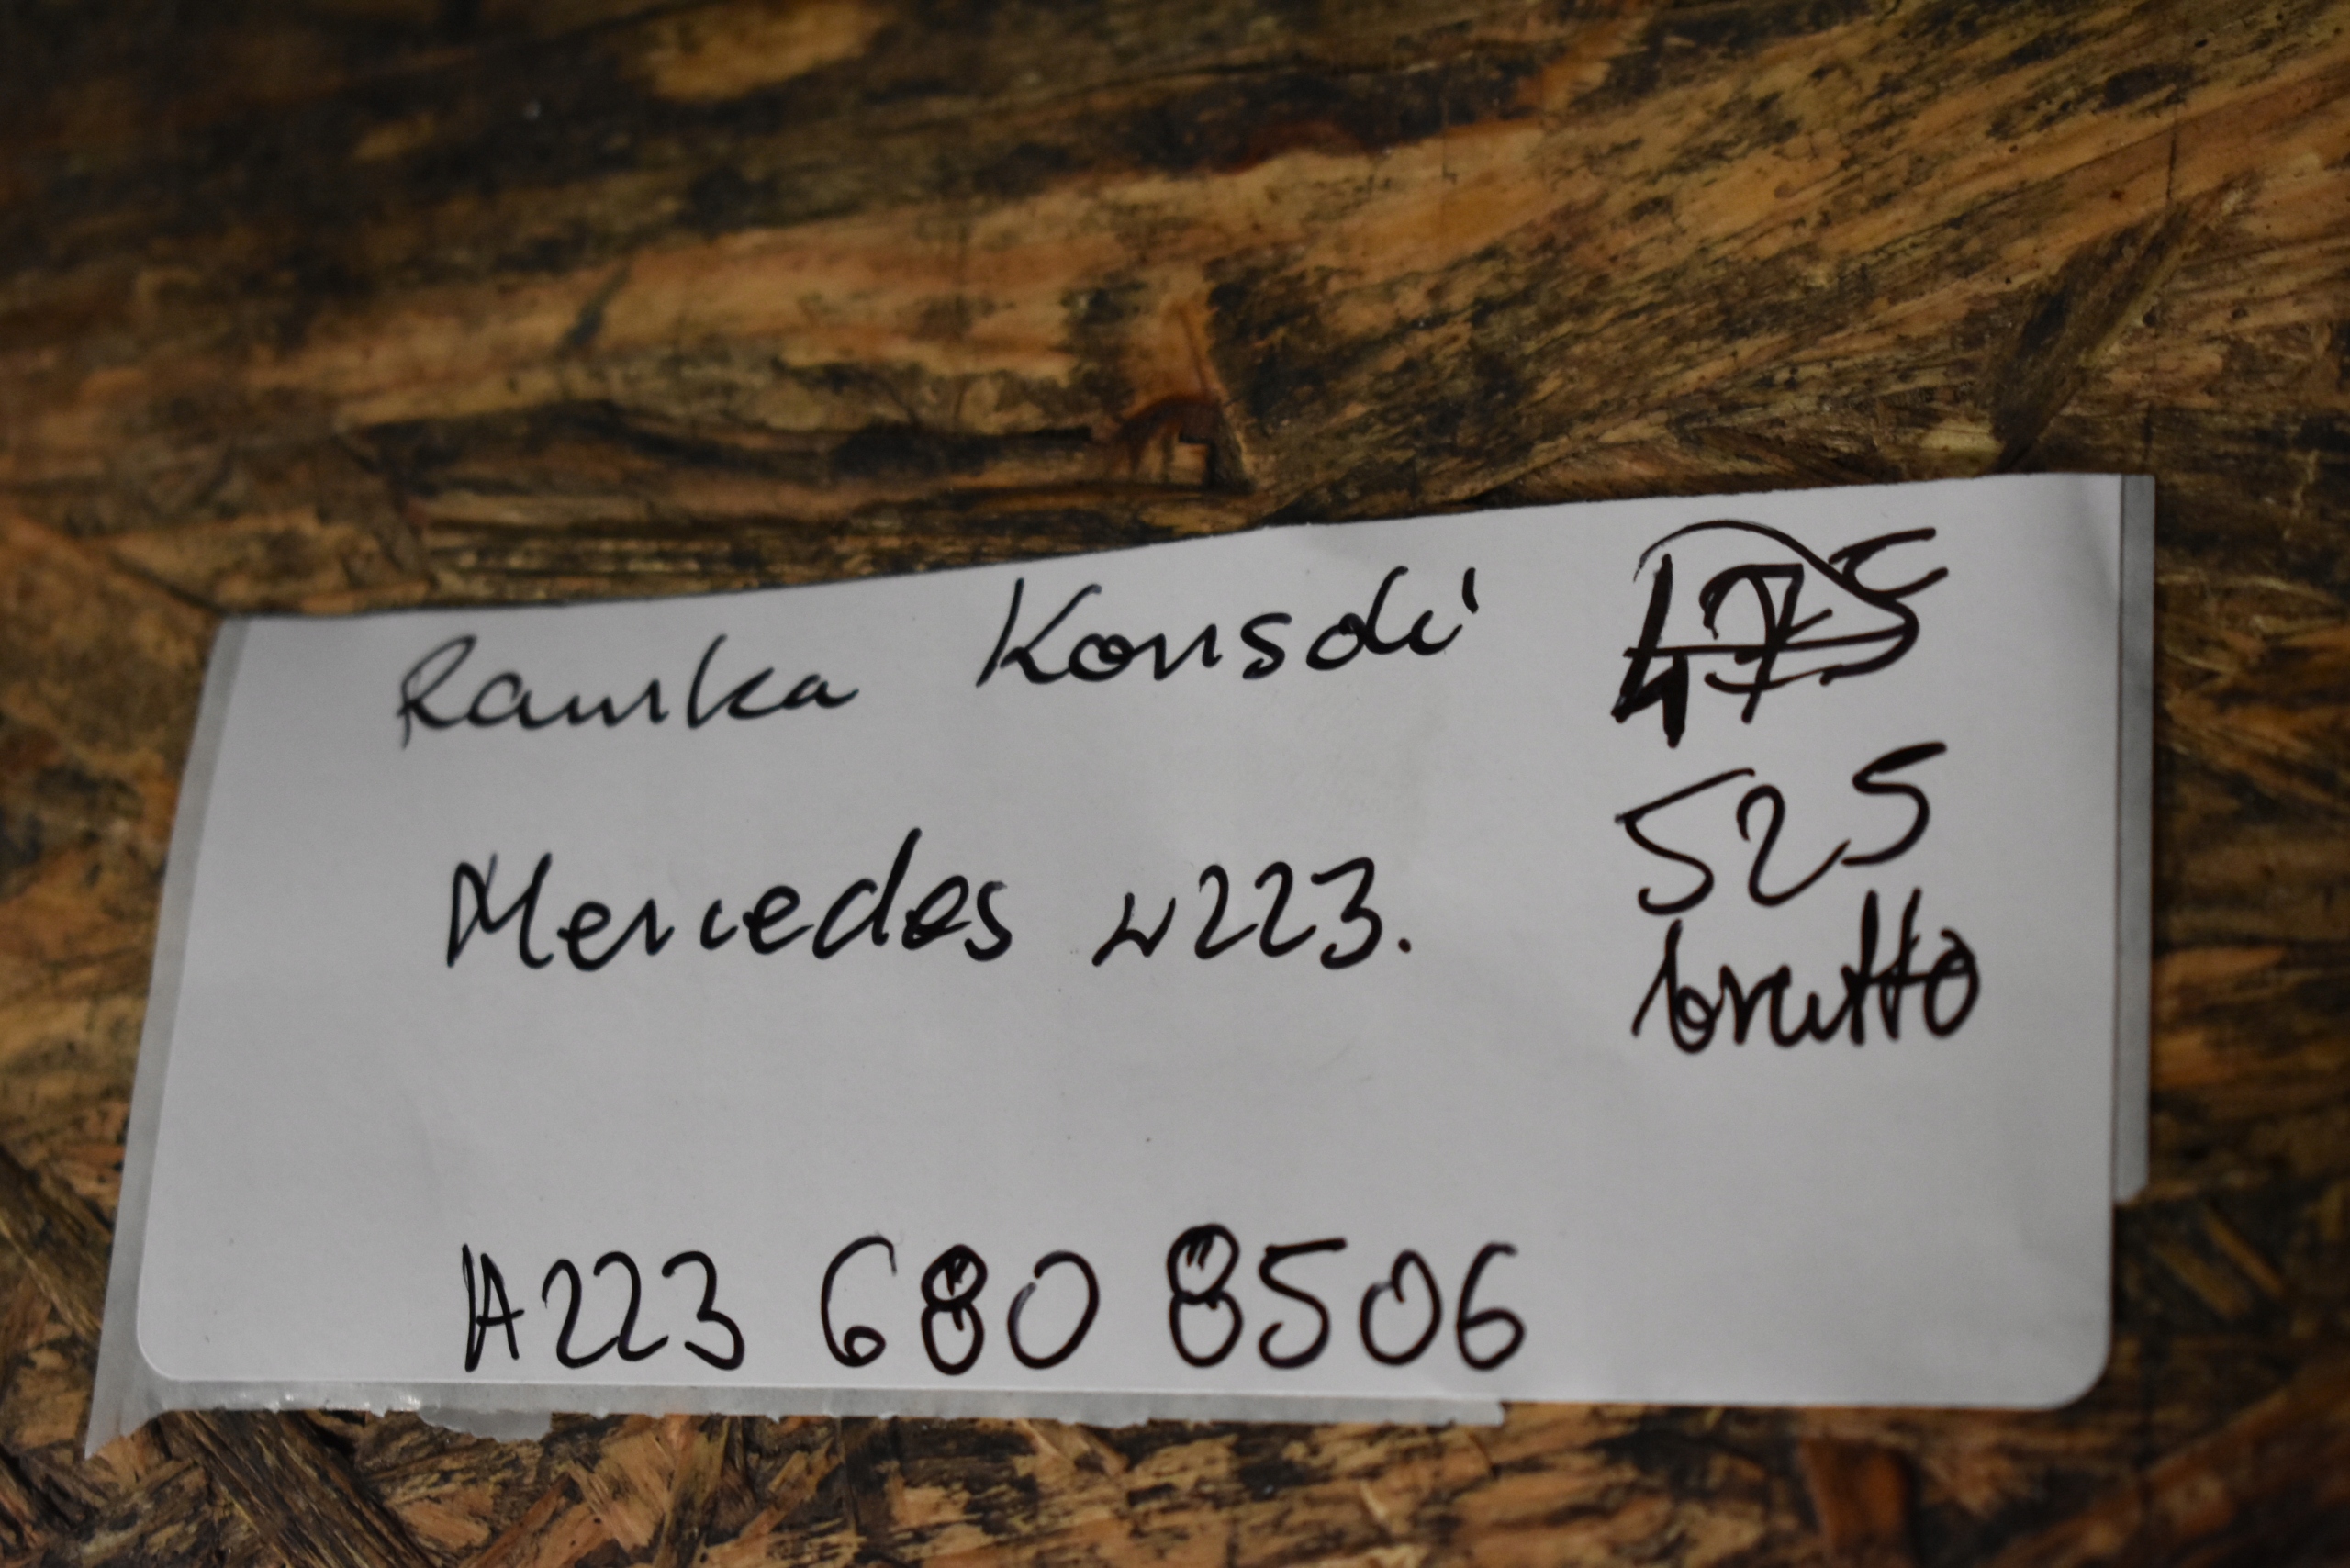 Ramka Konsoli
Mercedes w223.
525
brutto
A223 680 8506